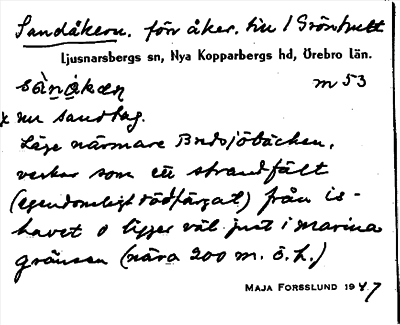 Sandåkern. förr åker. till 1 Gröntvett
Ljusnarsbergs sn, Nya Kopparbergs hd, Örebro län.
sànǻkæɳ m 53
x nu sandtag.
Läge närmare Bredsjöbäcken,
verkar som ett strandfält
(egendomligt rödfärgat) från is-
havet o ligger väl just i marina
gränsen (nära 200 m. ö. h.)
MAJA FORSSLUND 1947